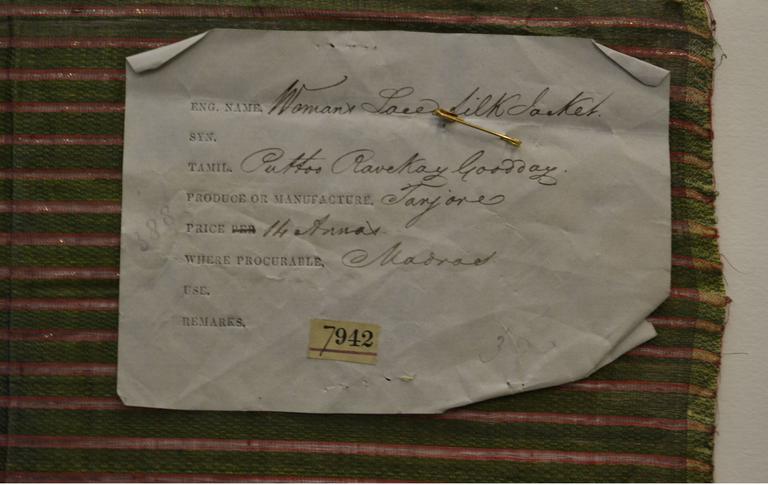 ENG. NAME. Womans Lace Silk Jacket.
SYN.
TAMIL. Puttoo Ravekay Goodday.
PRODUCE OR MANUFACTURE. Tanjore
PRICE PER 14 Annas.
WHERE PROCURABLE. Madras
USE.
REMARKS.
7942